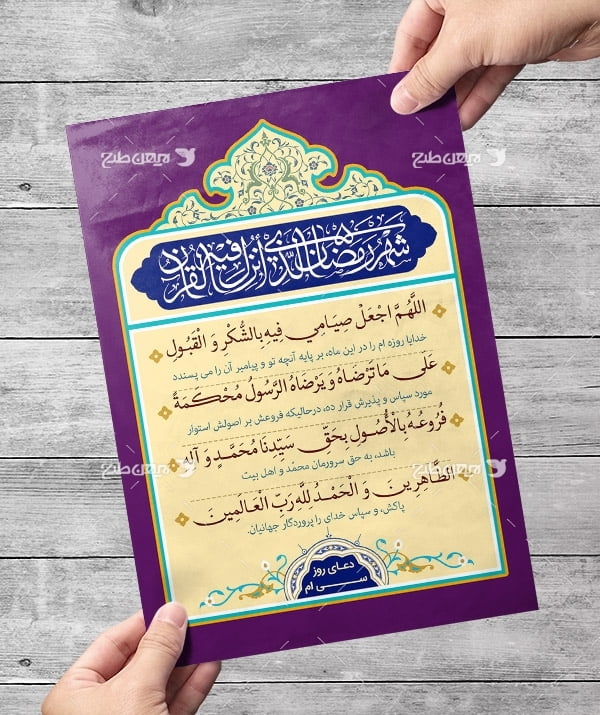 شَهْرُ رَمَضَانَ الَّذِي أُنْزِلَ فِيهِ الْقُرْآنُ
اللَّهُمَّ اجْعَلْ صِيَامِي فِيهِ بِالشُّكْرِ وَ الْقَبُولِ
خدایا روزه ام را در این ماه، بر پایه آنچه تو و پیامبر آن را می پسندد
عَلَى مَا تَرْضَاهُ وَ يَرْضَاهُ الرَّسُولُ مُحْكَمَةً
مورد سپاس و پذیرش قرار ده، درحالیکه فروعش بر اصولش استوار
فُرُوعُهُ بِالْأُصُولِ بِحَقِّ سَيِّدِنَا مُحَمَّدٍ وَ آلِهِ
باشد، به حق سرورمان محمد و اهل بیت
الطَّاهِرِينَ وَ الْحَمْدُ لِلَّهِ رَبِّ الْعَالَمِينَ
پاکش، و سپاس خدای را پروردگار جهانیان.
دعای روز
سی ام
میهن طرح
میهن طرح
میهن طرح
میهن طرح